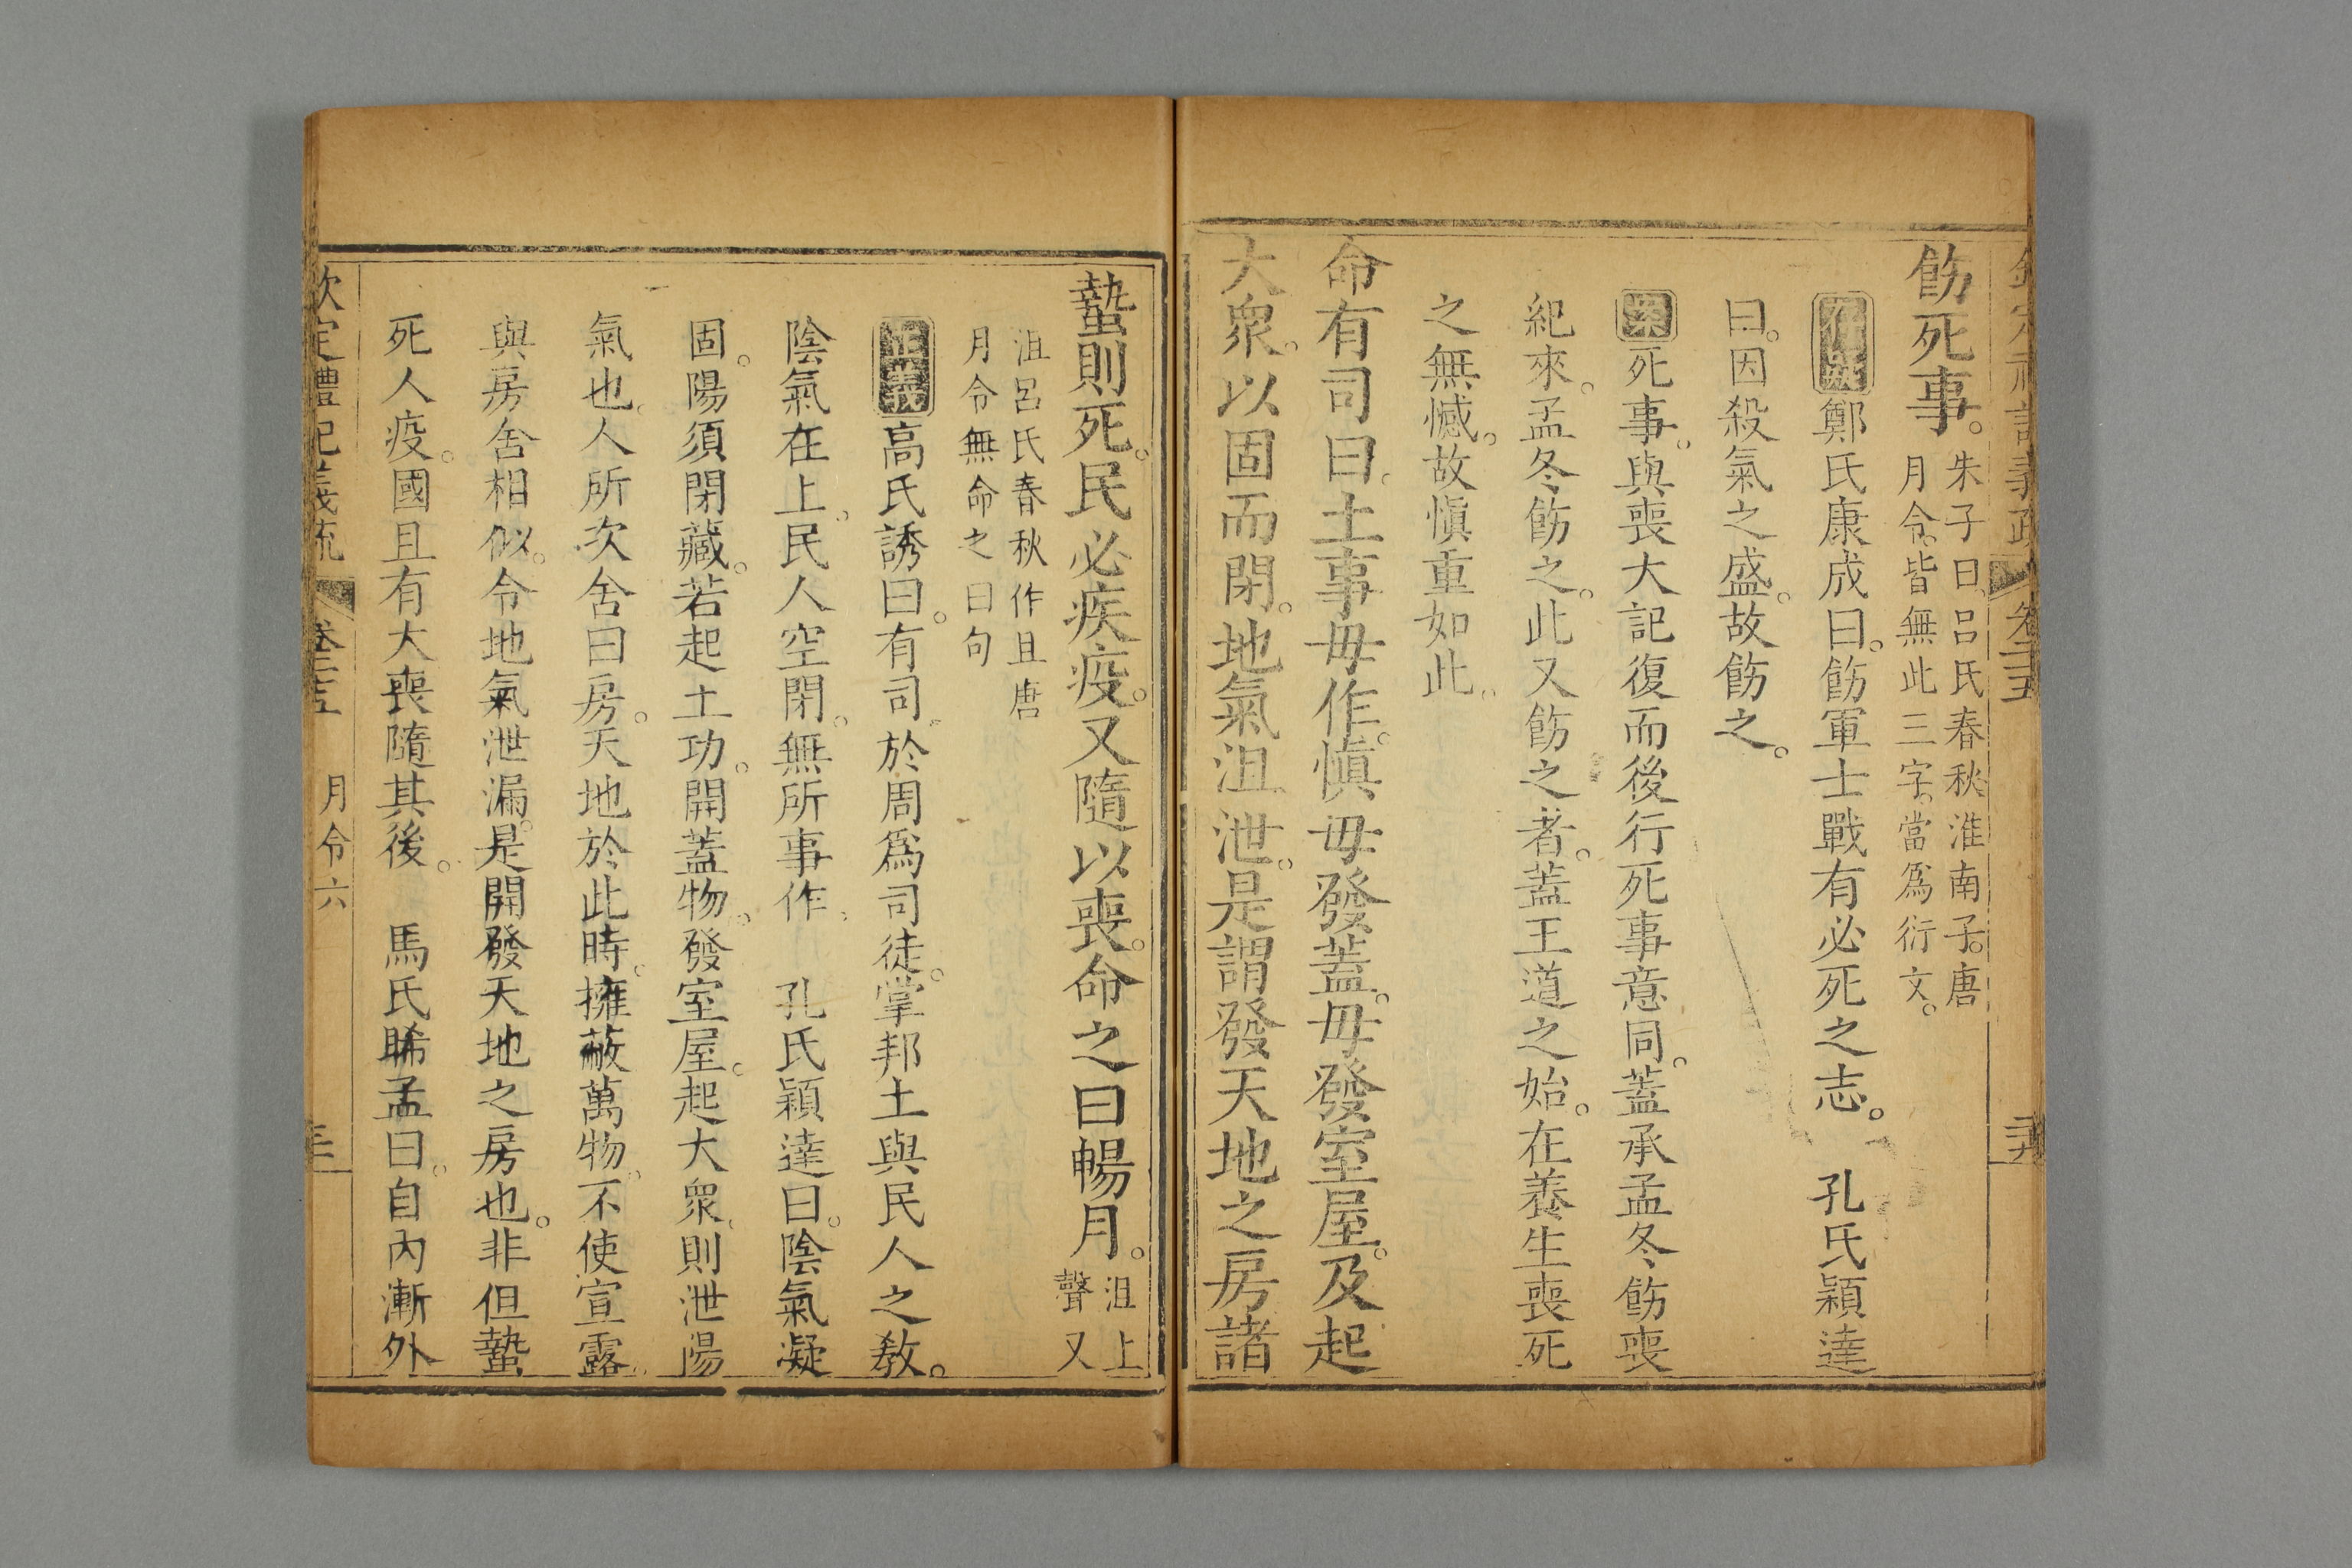 欽定禮記義疏 卷二十五
飭死事。朱子曰、呂氏春秋淮南子。唐
月令。皆無此三字。當爲衍文。
存疑 鄭氏康成曰。飭軍士戰有必死之志。 孔氏穎達
曰。因殺氣之盛。故飭之。
案 死事。與喪大記復而後行死事意同。蓋承孟冬飭喪
紀來。孟冬飭之。此又飭之者。蓋王道之始。在養生喪死
之無憾。故愼重如此。
命有司曰。土事毋作。愼毋發蓋。毋發室屋。及起
大衆。以固而閉。地氣沮泄。是謂發天地之房諸
蟄則死。民必疾疫。又隨以喪。命之曰暢月。沮上
聲又
沮呂氏春秋作且唐
月令無命之曰句
正義 高氏誘曰。有司。於周爲司徒。掌邦土與民人之敎。
陰氣在上。民人空閉。無所事作。 孔氏穎達曰。陰氣凝
固。陽須閉藏。若起土功。開蓋物。發室屋。起大衆。則泄陽
氣也。人所次舍曰房。天地於此時。擁蔽萬物。不使宣露。
與房舍相似。令地氣泄漏。是開發天地之房也。非但蟄
死人疫。國且有大喪隨其後。 馬氏睎孟曰。自內漸外
欽定禮記義疏 卷二十五 月令六